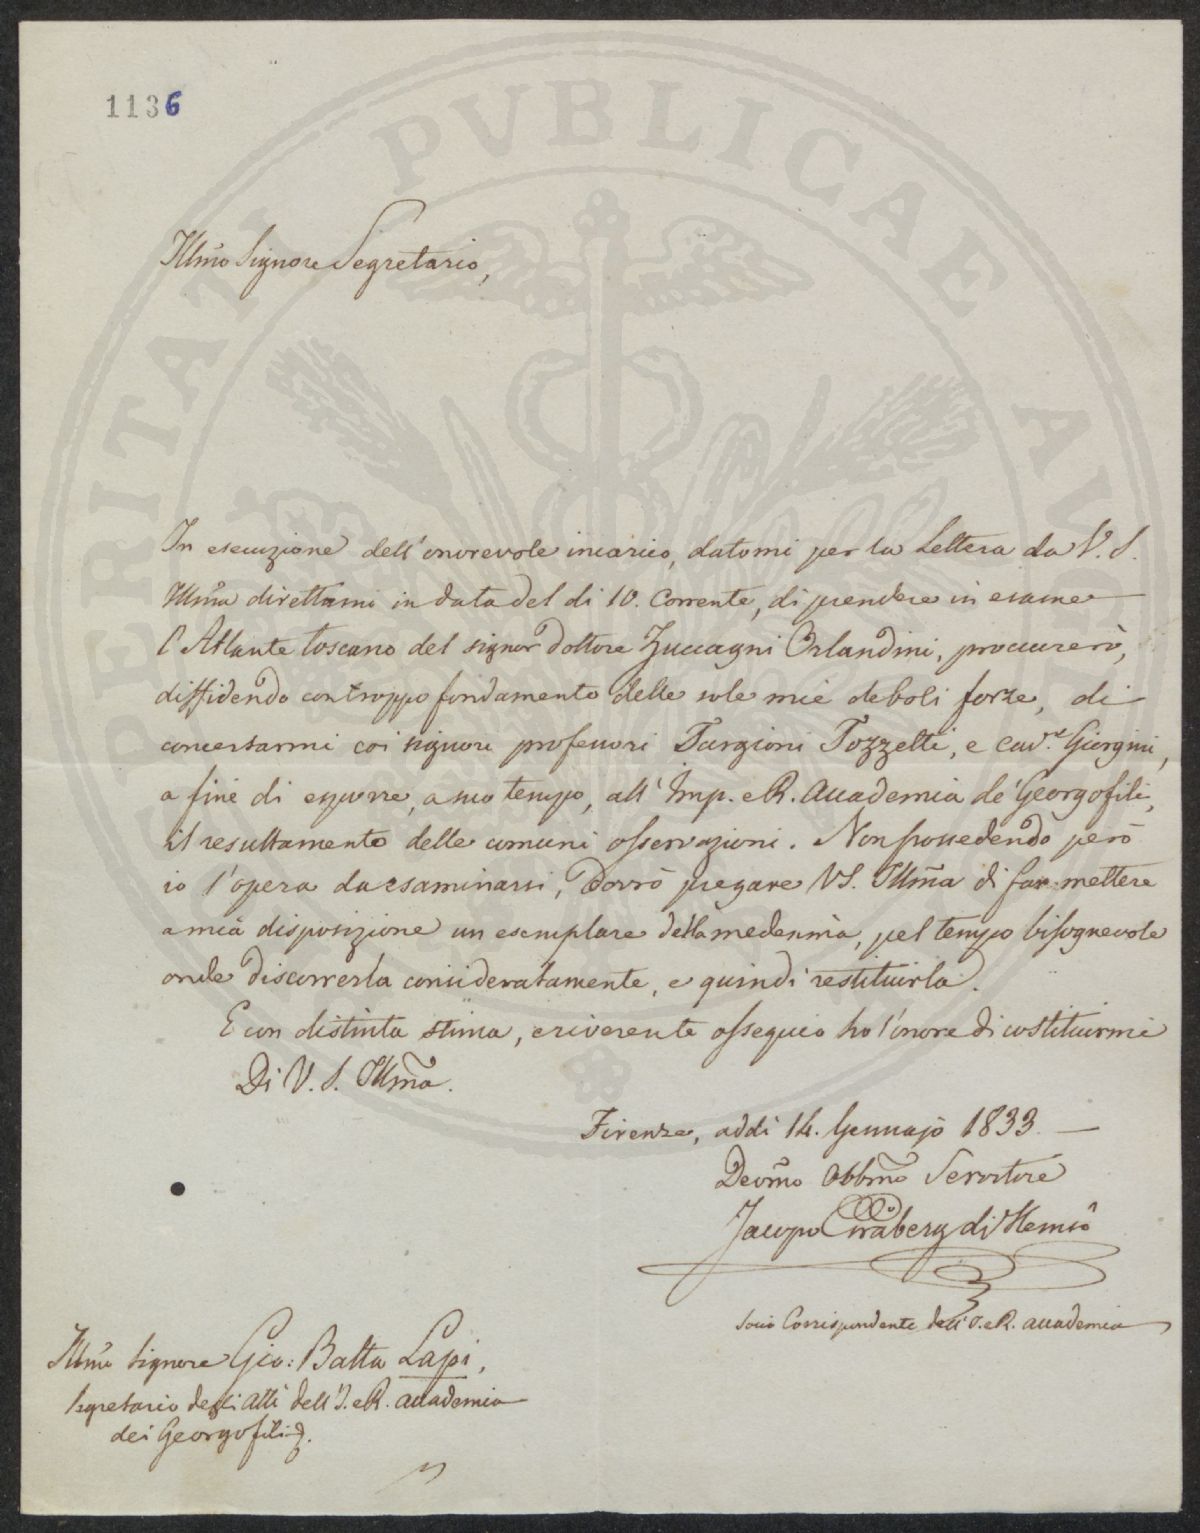 1136
PROSPERITATI PVBLICAE AVGENDAE
Illmo Signore Segretario,
In esecuzione dell'onorevole incarico, datomi per la Lettera da V. S.
Illma direttami in data del di 10. Corrente, di prendere in esame
l'Atlante toscano del signor dottore Zuccagni Orlandini, proccurerò,
diffidendo con troppo fondamento delle sole mie deboli forze, di
concertarmi coi signori professori Targioni Tozzetti, e Cav.e Giorgini,
a fine di esporre, a suo tempo, all'Imp. e R. Accademia de' Georgofili,
il resultamento delle comuni osservazioni. Non possedendo però
io l'opera da esaminarsi, dovrò pregare VS. Illma di far mettere
a mia disposizione un esemplare della medesima, pel tempo bisognevole
onde discorrerla consideratamente, e quindi restituirla.
E con distinta stima, e riverente ossequio ho l'onore di costituirmi
Di V. S. Illma.
Firenze, addì 14. Gennajo 1833. —
Devmo Obbmo Servitore
Jacopo Gråberg di Hemsö
Socio Corrispondente dell'I. e R. Accademia
Illmo Signore Gio: Batta Lapi,
Segretario degli Atti dell'I. e R. Accademia
dei Georgofili